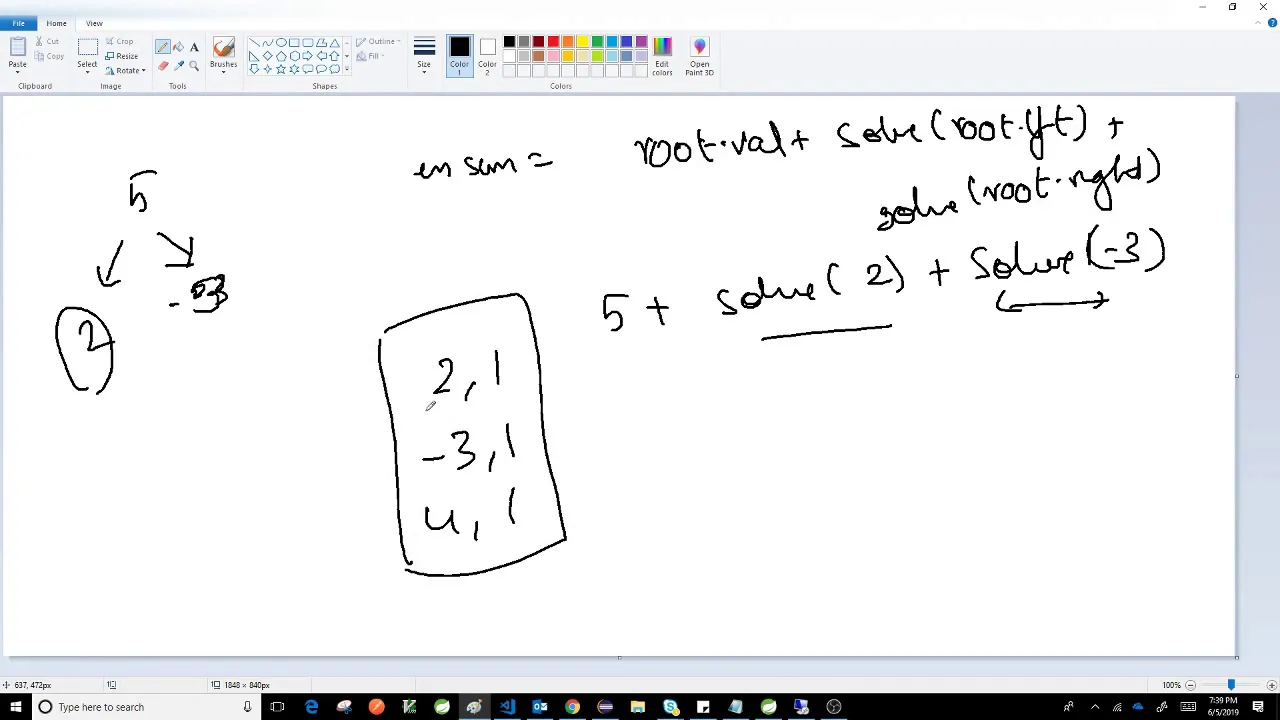 File
Home
View
Paste
Cut
Copy
Clipboard
Select
Crop
Resize
Rotate
Image
A
Tools
Brushes
Shapes
Outline
Fill
Size
Color 1
Color 2
Colors
Edit colors
Open Paint 3D
sum = root.val + solve(root.left) +
solve(root.right)
5
2
-3
5 + solve(2) + solve(-3)
2, 1
-3, 1
4, 1
637, 472px
1848 × 840px
100%
Type here to search
7:39 PM
6/5/2019